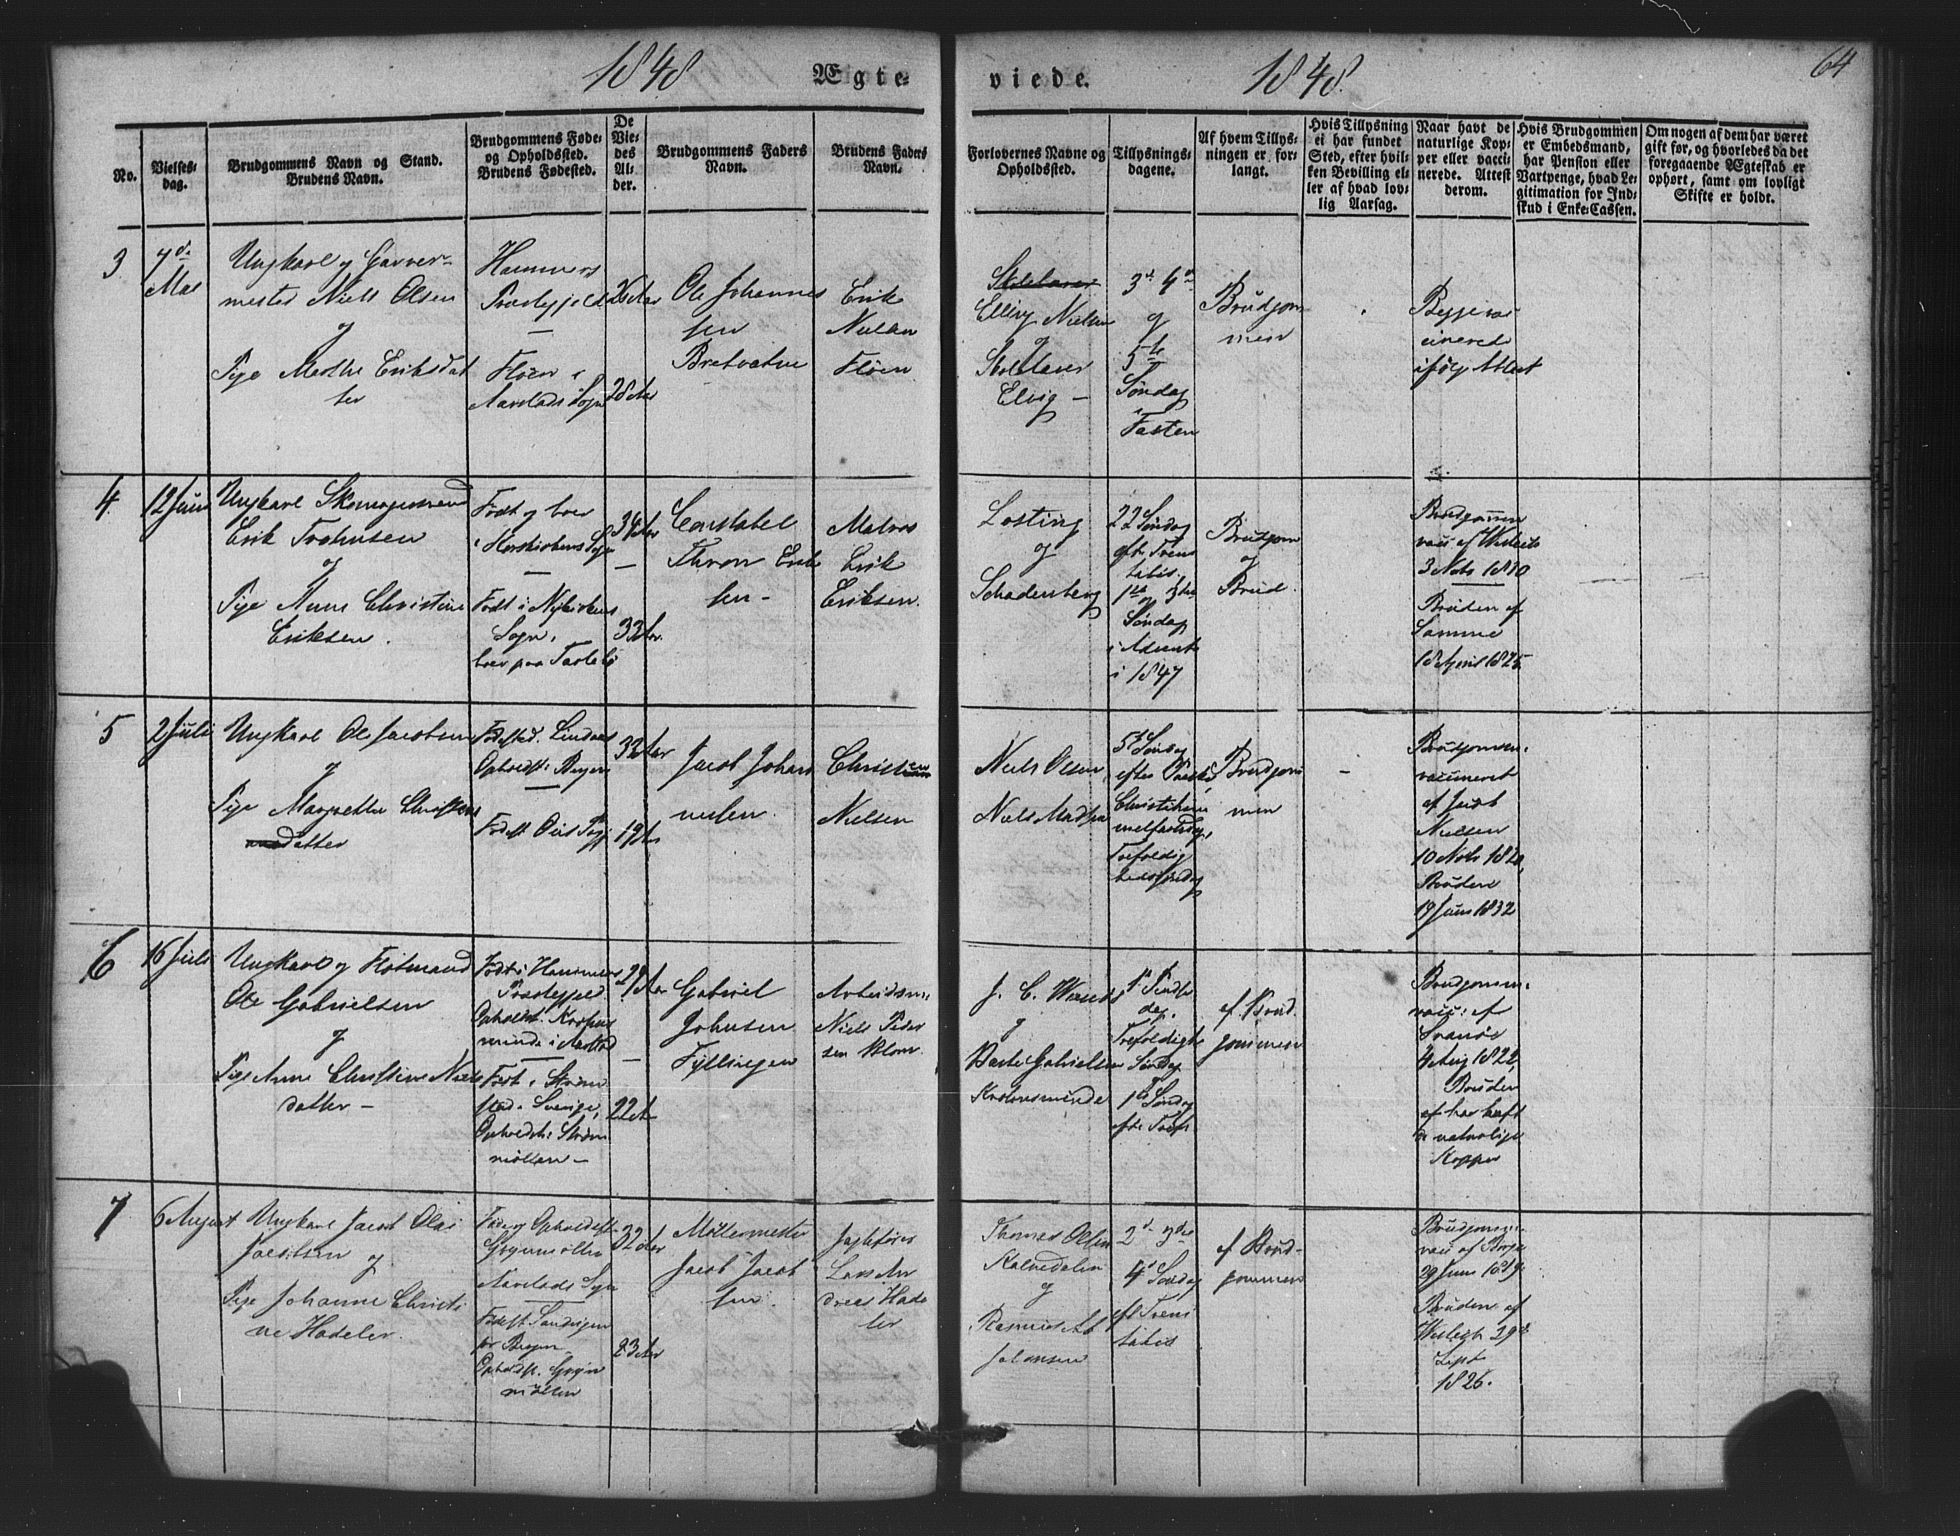 1848 Ægte-
viede. 1848. 64
No.
Vielses-
dag.
Brudgommens Navn og Stand.
Brudens Navn.
Brudgommens Føde-
og Opholdssted.
Brudens Fødested.
De
Vie-
des
Al-
der.
Brudgommens Faders
Navn.
Brudens Faders
Navn.
Forlovernes Navne og
Opholdssted.
Tillysnings-
dagene.
Af hvem Tillys-
ningen er for-
langt.
Hvis Tillysning
ei har fundet
Sted, efter hvil-
ken Bevilling el-
ler af hvad lov-
lig Aarsag.
Naar havt de
naturlige Kop-
per eller vacci-
nerede. Attest
derom.
Hvis Brudgommen
er Embedsmand,
har Pension eller
Vartpenge, hvad Le-
gitimation for Ind-
skud i Enke-Cassen.
Om nogen af dem har været
gift før, og hvorledes da det
foregaaende Ægteskab er
ophørt, samt om lovligt
Skifte er holdt.
3
7de
Mai
Ungkarl og Garver-
mester Niels Olsen
og
Pige Marthe Eriksdat
ter
Hammers
Præstegjeld
—
Floen i
Aarstads Sogn
28 Aar
Ole Johannes
sen
Erik
Nielsen
Floen
Elling Nielsen
og
Skolelærer
Elvig —
3d 4d
og
5te
Søndag
i
Fasten
Brudgom
men
Begge vac
cinerede
ifølge Attest
4.
12 Juni
Ungkarl
Erik
og
Pige Anne Christine
Eriksen.
Født og boer
i Korskirkens Sogn
—
Født i Nykirkens
Sogn,
boer paa
34 Aar
—
33 Aar
Constabel
Thron Erik
sen -
Matros
Erik
Eriksen.
Losting
og
Schadenberg
22 Søndag
eft. Trini
tatis,
Søndag
i Advent
i 1847
Brudgom
og
Brud.
Brudgommen
vacc. af
3 Nov 1810
Bruden af
Samme
18 April 1825
5
2 Juli
Ungkarl Ole Jacobsen
og
Pige Margrethe Christens
datter
Fødested. Lindaas
Opholdst. Bergen
—
Fødest. Ous Prgj
33 Aar
19 Aar
Jacob Johan
nesen.
Christian
Nielsen
Niels Olsen
Niels Madsen
5t Søndag
efter Paaske
Christi him
melfartsdag,
Trefoldig
hedssøndag
Brudgom
men
-
Brudgommen
vaccineret
af Jacob
Nielsen
10 Nov 1820,
Bruden
19 Juni 1832
6
16 Juli
Ungkarl og Flotmand
Ole Gabrielsen
og
Pige Anne Christine Niels
datter —
Født i Hammers
Præstegjeld.
Opholdst. Krohns
minde i Aarstad
—
Født i Strøm
stad i Sverige,
Opholdst. i Strøm
møllen —
29 Aar
—
22 Aar
Gabriel
Johnsen
Fyllingen
Arbeidsm.
Niels Peder
sen Blom.
J. C.
og
Gabrielsen
Krohnsminde
1ste Pindse
dag.
Trefoldigh.
Søndag
1ste Søndag
efter Tref.
af Brud
gommen
Brudgommen
vacc. af
Svanøe
4 Aug 1822,
Bruden
har haft
de naturlige
Kopper
7
6 August
Ungkarl Jacob Olai
Jacobsen og
Pige Johanne Christi
ne Hadeler.
Føde og Opholdsst.
Aarstads Sogn
—
Fødest. Sandvigen
for Bergen
Opholdst.
møllen
32 Aar
23 Aar
Møllermester
Jacob Jacob
sen.
Lars An
dreas Hade
ler
Thomas Olsen
Kalvedalen
og
Rasmus
Johansen
2d 3die
4de Søndag
eft Trini
tatis
af Brud-
gommen
Brudgommen
vacc af
29 Juni 1819.
Bruden af
29de
Sept
1826.